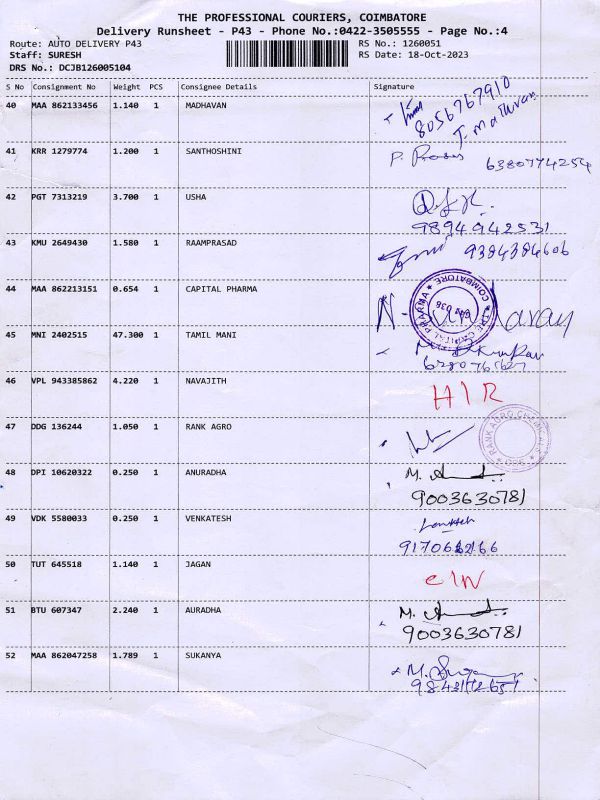 THE PROFESSIONAL COURIERS, COIMBATORE
Delivery Runsheet - P43 - Phone No.:0422-3505555 - Page No.:4
Route: AUTO DELIVERY P43 RS No.: 1260051
Staff: SURESH RS Date: 18-Oct-2023
DRS No.: DCJB126005104
S No Consignment No Weight PCS Consignee Details Signature
40 MAA 862133456 1.140 1 MADHAVAN
8056767910
T. Madhavan
41 KRR 1279774 1.200 1 SANTHOSHINI
6380774254
42 PGT 7313219 3.700 1 USHA
9894942531
43 KMU 2649430 1.580 1 RAAMPRASAD 9384384606
44 MAA 862213151 0.654 1 CAPITAL PHARMA
THE CAPITAL PHARMA COIMBATORE
45 MNI 2402515 47.300 1 TAMIL MANI
46 VPL 943385862 4.220 1 NAVAJITH HIR
47 DDG 136244 1.050 1 RANK AGRO
RANK AGRO CHEMICALS
48 DPI 10620322 0.250 1 ANURADHA M.
9003630781
49 VDK 5580033 0.250 1 VENKATESH
50 TUT 645518 1.140 1 JAGAN CIN
51 BTU 607347 2.240 1 AURADHA M.
9003630781
52 MAA 862047258 1.789 1 SUKANYA M.